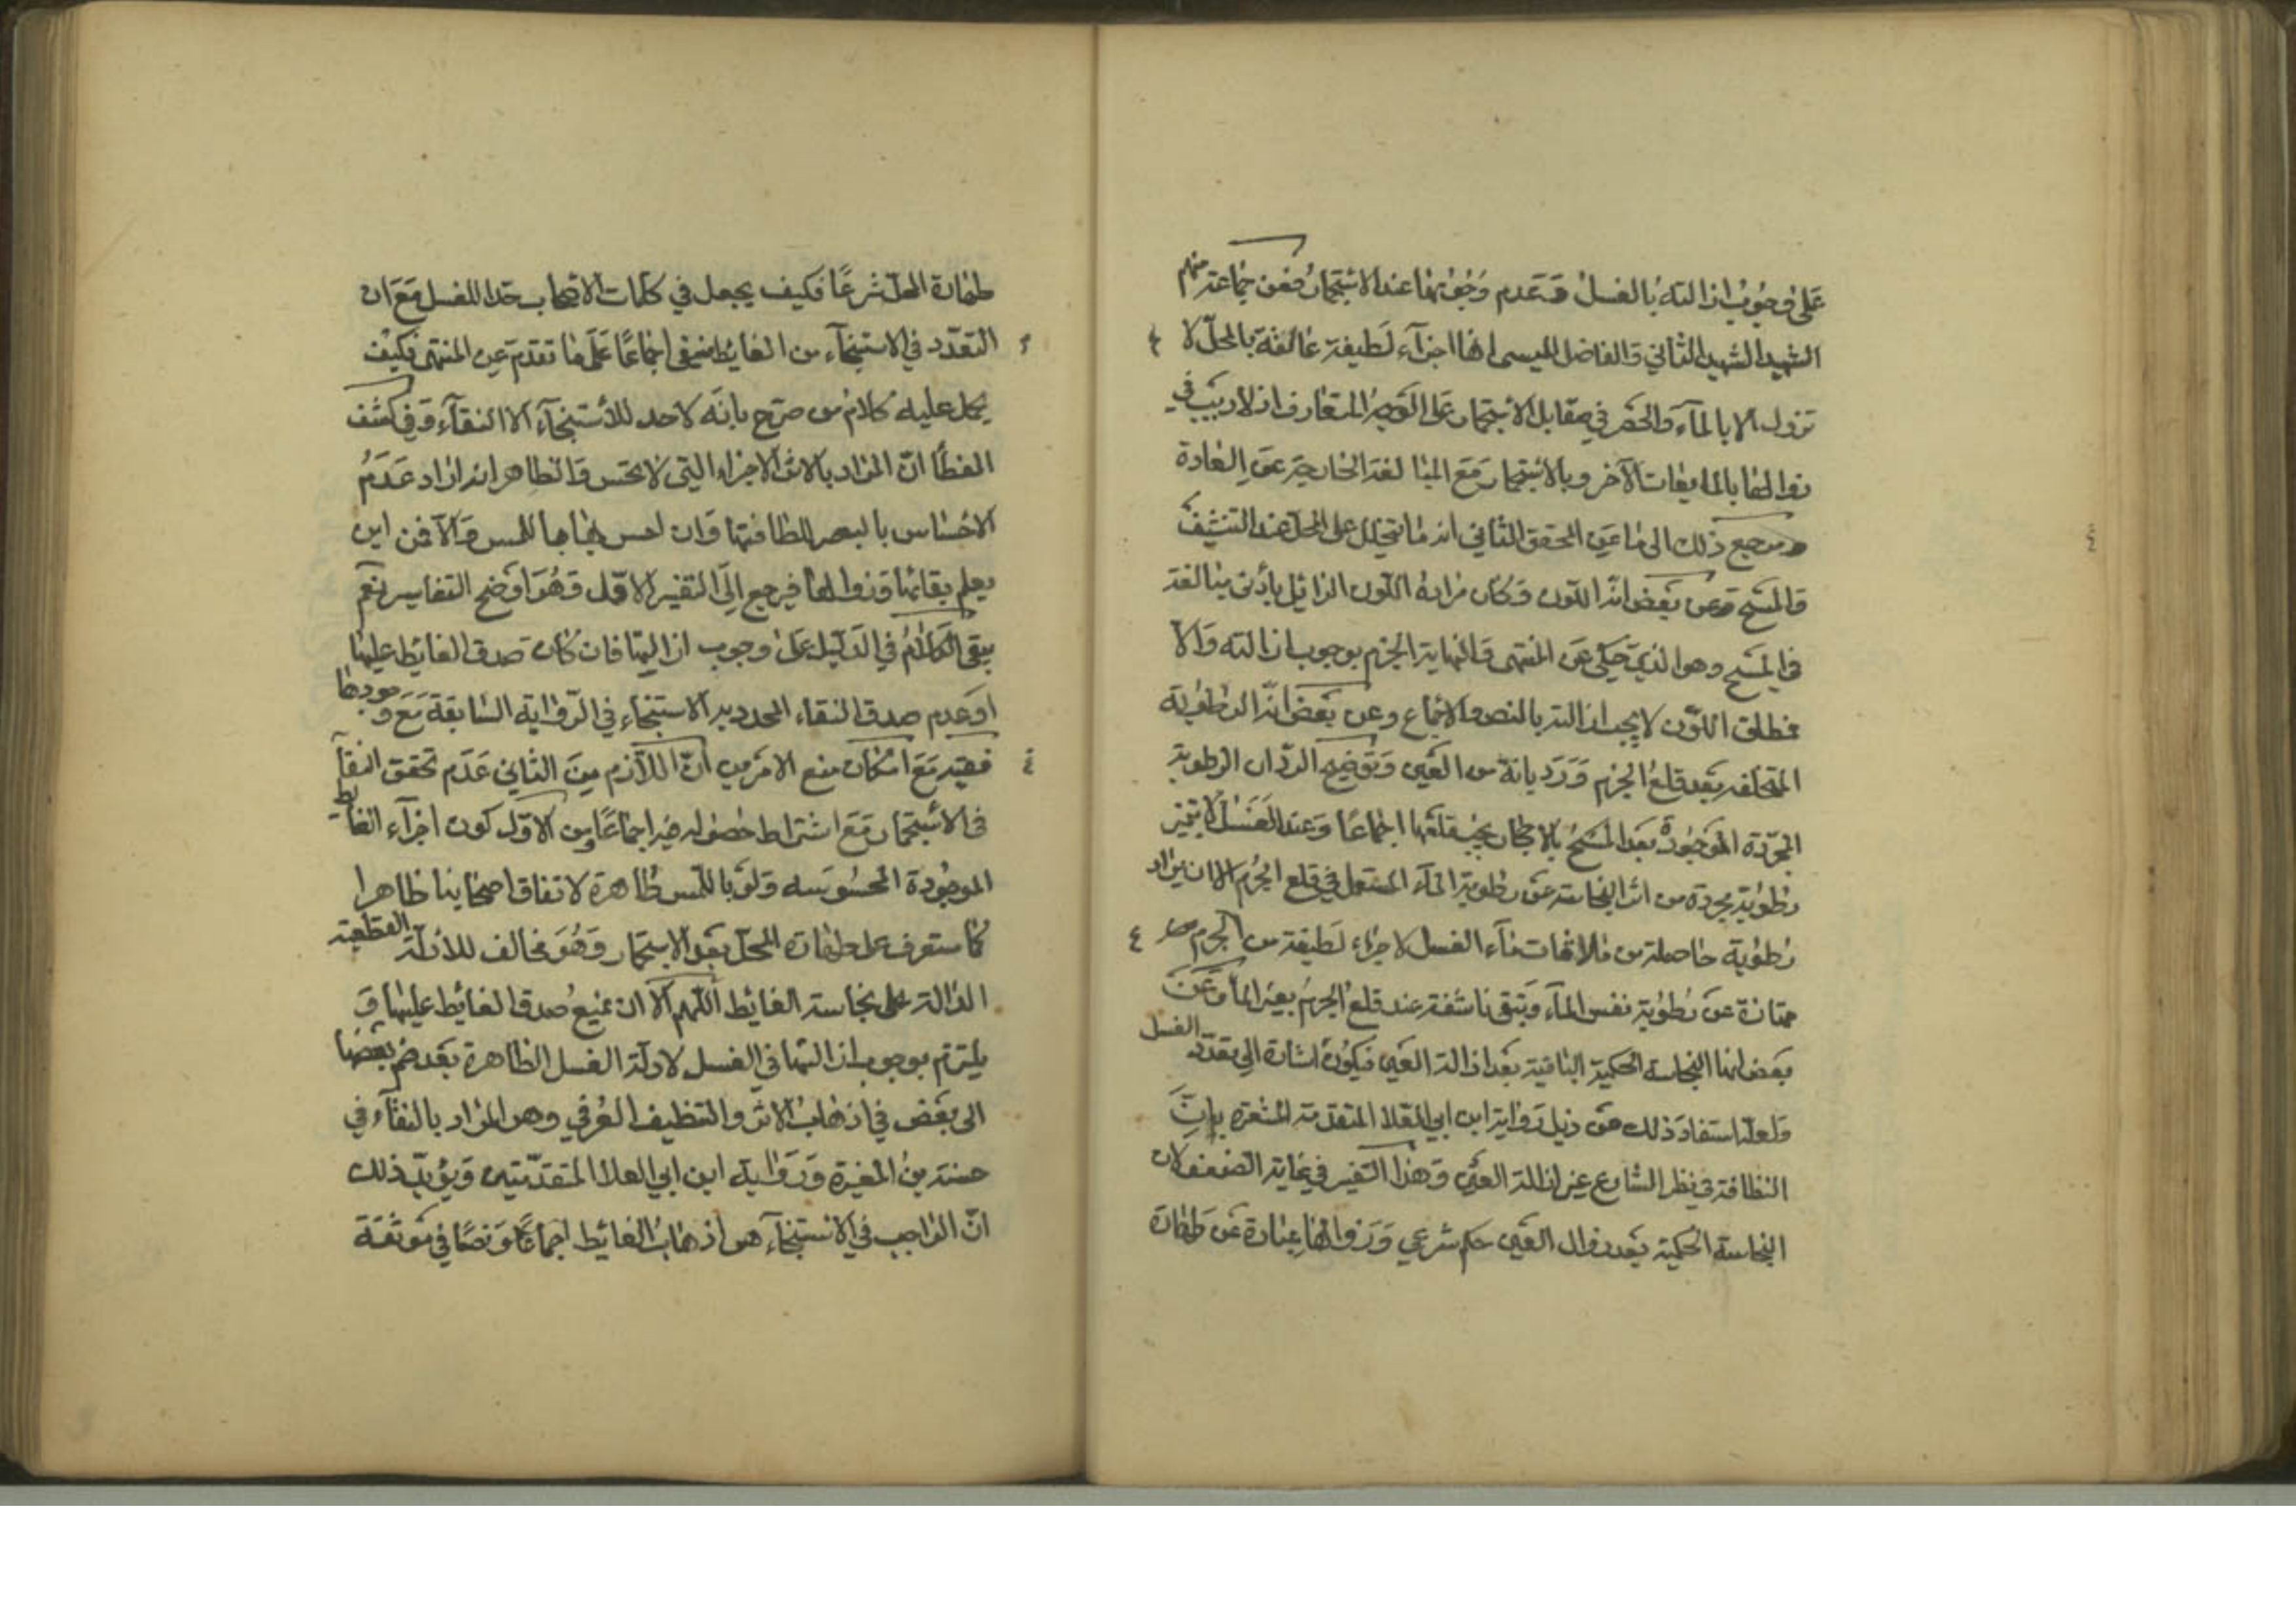 على وجوب ازالته بالغسل وعدم وجوبها عند الاستجمار فعن جماعة منهم
الشهيد الشهيد الثاني والفاضل الميسى انها اجزآء لطيفة عالقة بالمحل لا
تزول الا بالمآء والحصر في مقابل الاستجمار على الوجه المتعارف اذ لا ريب في
زوالها بالمايعات الآخر وبالاستجمار مع المبالغة الخارجة عن العادة
ومرجع ذلك الى ما عن المحقق الثاني انه ما يتخلل على المحل عند التنشيف
والمسح وعن بعض انه اللون وكان مراده اللون الزائيل بأدنى مبالغة
في المسح وهو الذي حكى عن المنتهى والنهاية الجزم بوجوب ازالته والا
فمطلق اللون لا يجب ازالته بالنص والاجماع وعن بعض انه الرطوبة
المتخلفه بعد قلع الجرم ورد بانة من العين وتوضيح الرد ان الرطوبة
المجردة الموجودة بعد المسح بالاحجار يجب قلعها اجماعا وعند الغسل لا يتميز
رطوبة مجردة من اثر النجاسة عن رطوبة المآء المستعمل في قلع الجرم الا ان يراد
رطوبة حاصلة من ملاقات مآء الغسل لاجزاء لطيفة من الجرم
ممتازة عن رطوبة نفس المآء وتبقى ناشفة عند قلع الجرم بغير المآء وعن
بعض انها النجاسة الحكمية الباقية بعد ازالة العين فيكون اشارة الى تعدد الغسل
ولعله استفاد ذلك من ذيل رواية ابن ابي العلا المتقدمة المشعرة بان
النظافة في نظر الشارع غير ازالة العين وهذا التفسير في غاية الضعف لان
النجاسة الحكمية بعد زوال العين حكم شرعي وزوالها عبارة عن طهارة
طهارة المحل شرعًا فكيف يجعل في كلمات الاصحاب حدا للغسل مع ان
التعدد في الاستنجآء من الغايط منفي اجماعًا على ما تقدم عن المنتهى فكيف
يحمل عليه كلام من صرح بانه لا حد للأستنجآء الا النقآء وفي كشف
الغطأ ان المراد بالاثر الاجزاء التي لا تحس والظاهر انه اراد عدم
الاحساس بالبصر للطافتها وان احس بها باللمس والا فمن اين
يعلم بقائها وزوالها فيرجع الى التفسير الاول وهو اوضح التفاسير نعم
يبقى الكلام في الدليل على وجوب ازاليتها فان كان صدق الغائط عليها
او عدم صدق النقاء المحدد به الاستنجاء في الرواية السابقة مع وجودها
ففيه مع امكان منع الامرين ان اللازم من الثاني عدم تحقق النقآ
في الأستجمار مع اشتراط حصوله فيه اجماعًا ومن الاول كون اجزآء الغايط
الموجودة المحسوسه ولو باللمس طاهرة لاتفاق اصحابنا ظاهرا
كما ستعرف على طهارة المحل بعد الاستجمار وهو مخالف للأدلة القطعية
الدالة على نجاسة الغائط اللهم الا ان نمنع صدق الغايط عليها و
يلتزم بوجوب ازالتها في الغسل لادلة الغسل الظاهرة بعد ضم بعضها
الى بعض في اذهاب الاثر والتنظيف العرفي وهو المراد بالنقآء في
حسنة بن المغيرة ورواية ابن ابي العلا المتقدمتين ويؤيد ذلك
ان الواجب في الاستنجآء هو اذهاب الغائيط اجماعًا ونصًا في موثقة